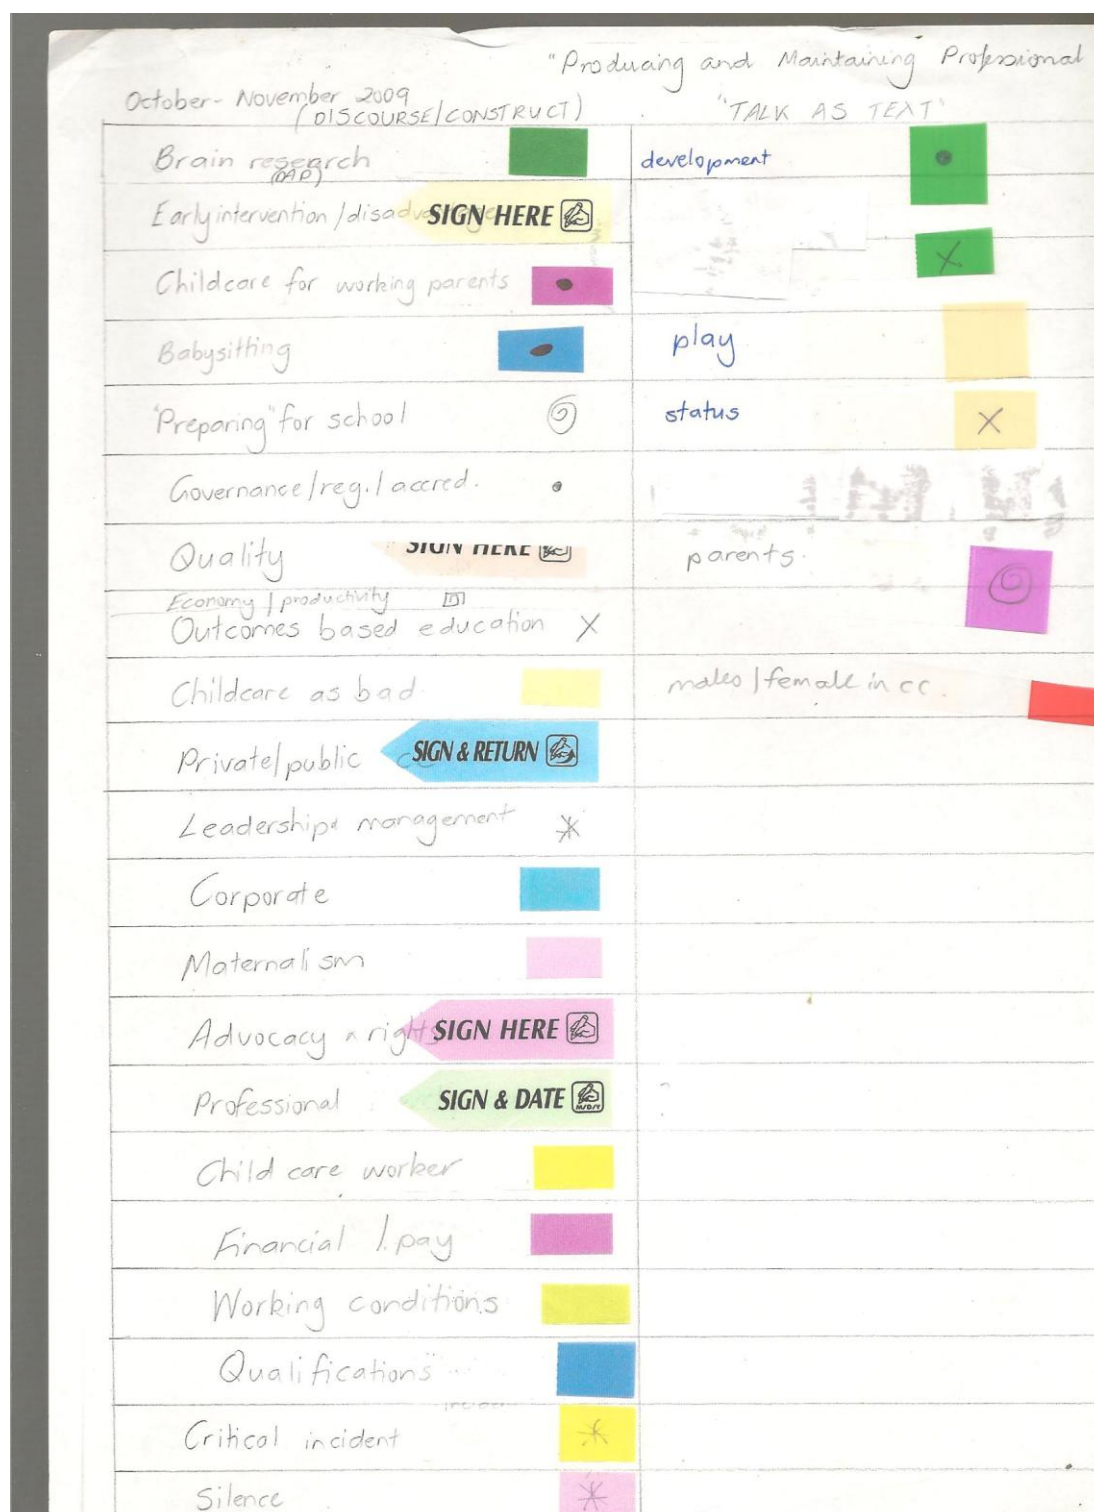 "Producing and Maintaining Professional
October - November 2009
(DISCOURSE/CONSTRUCT)
"TALK AS TEXT"
Brain research
(DAP)
development
Early intervention / SIGN HERE
Childcare for working parents
Babysitting
play
"Preparing" for school
status
Governance/reg./accred.
Quality SIGN HERE
parents.
Economy / productivity
Outcomes based education X
Childcare as bad
males/female in cc.
Private/public SIGN & RETURN
Leadership & management
Corporate
Maternalism
Advocacy & rights SIGN HERE
Professional SIGN & DATE
Child care worker
Financial /. pay
Working conditions
Qualifications
Critical incident
Silence